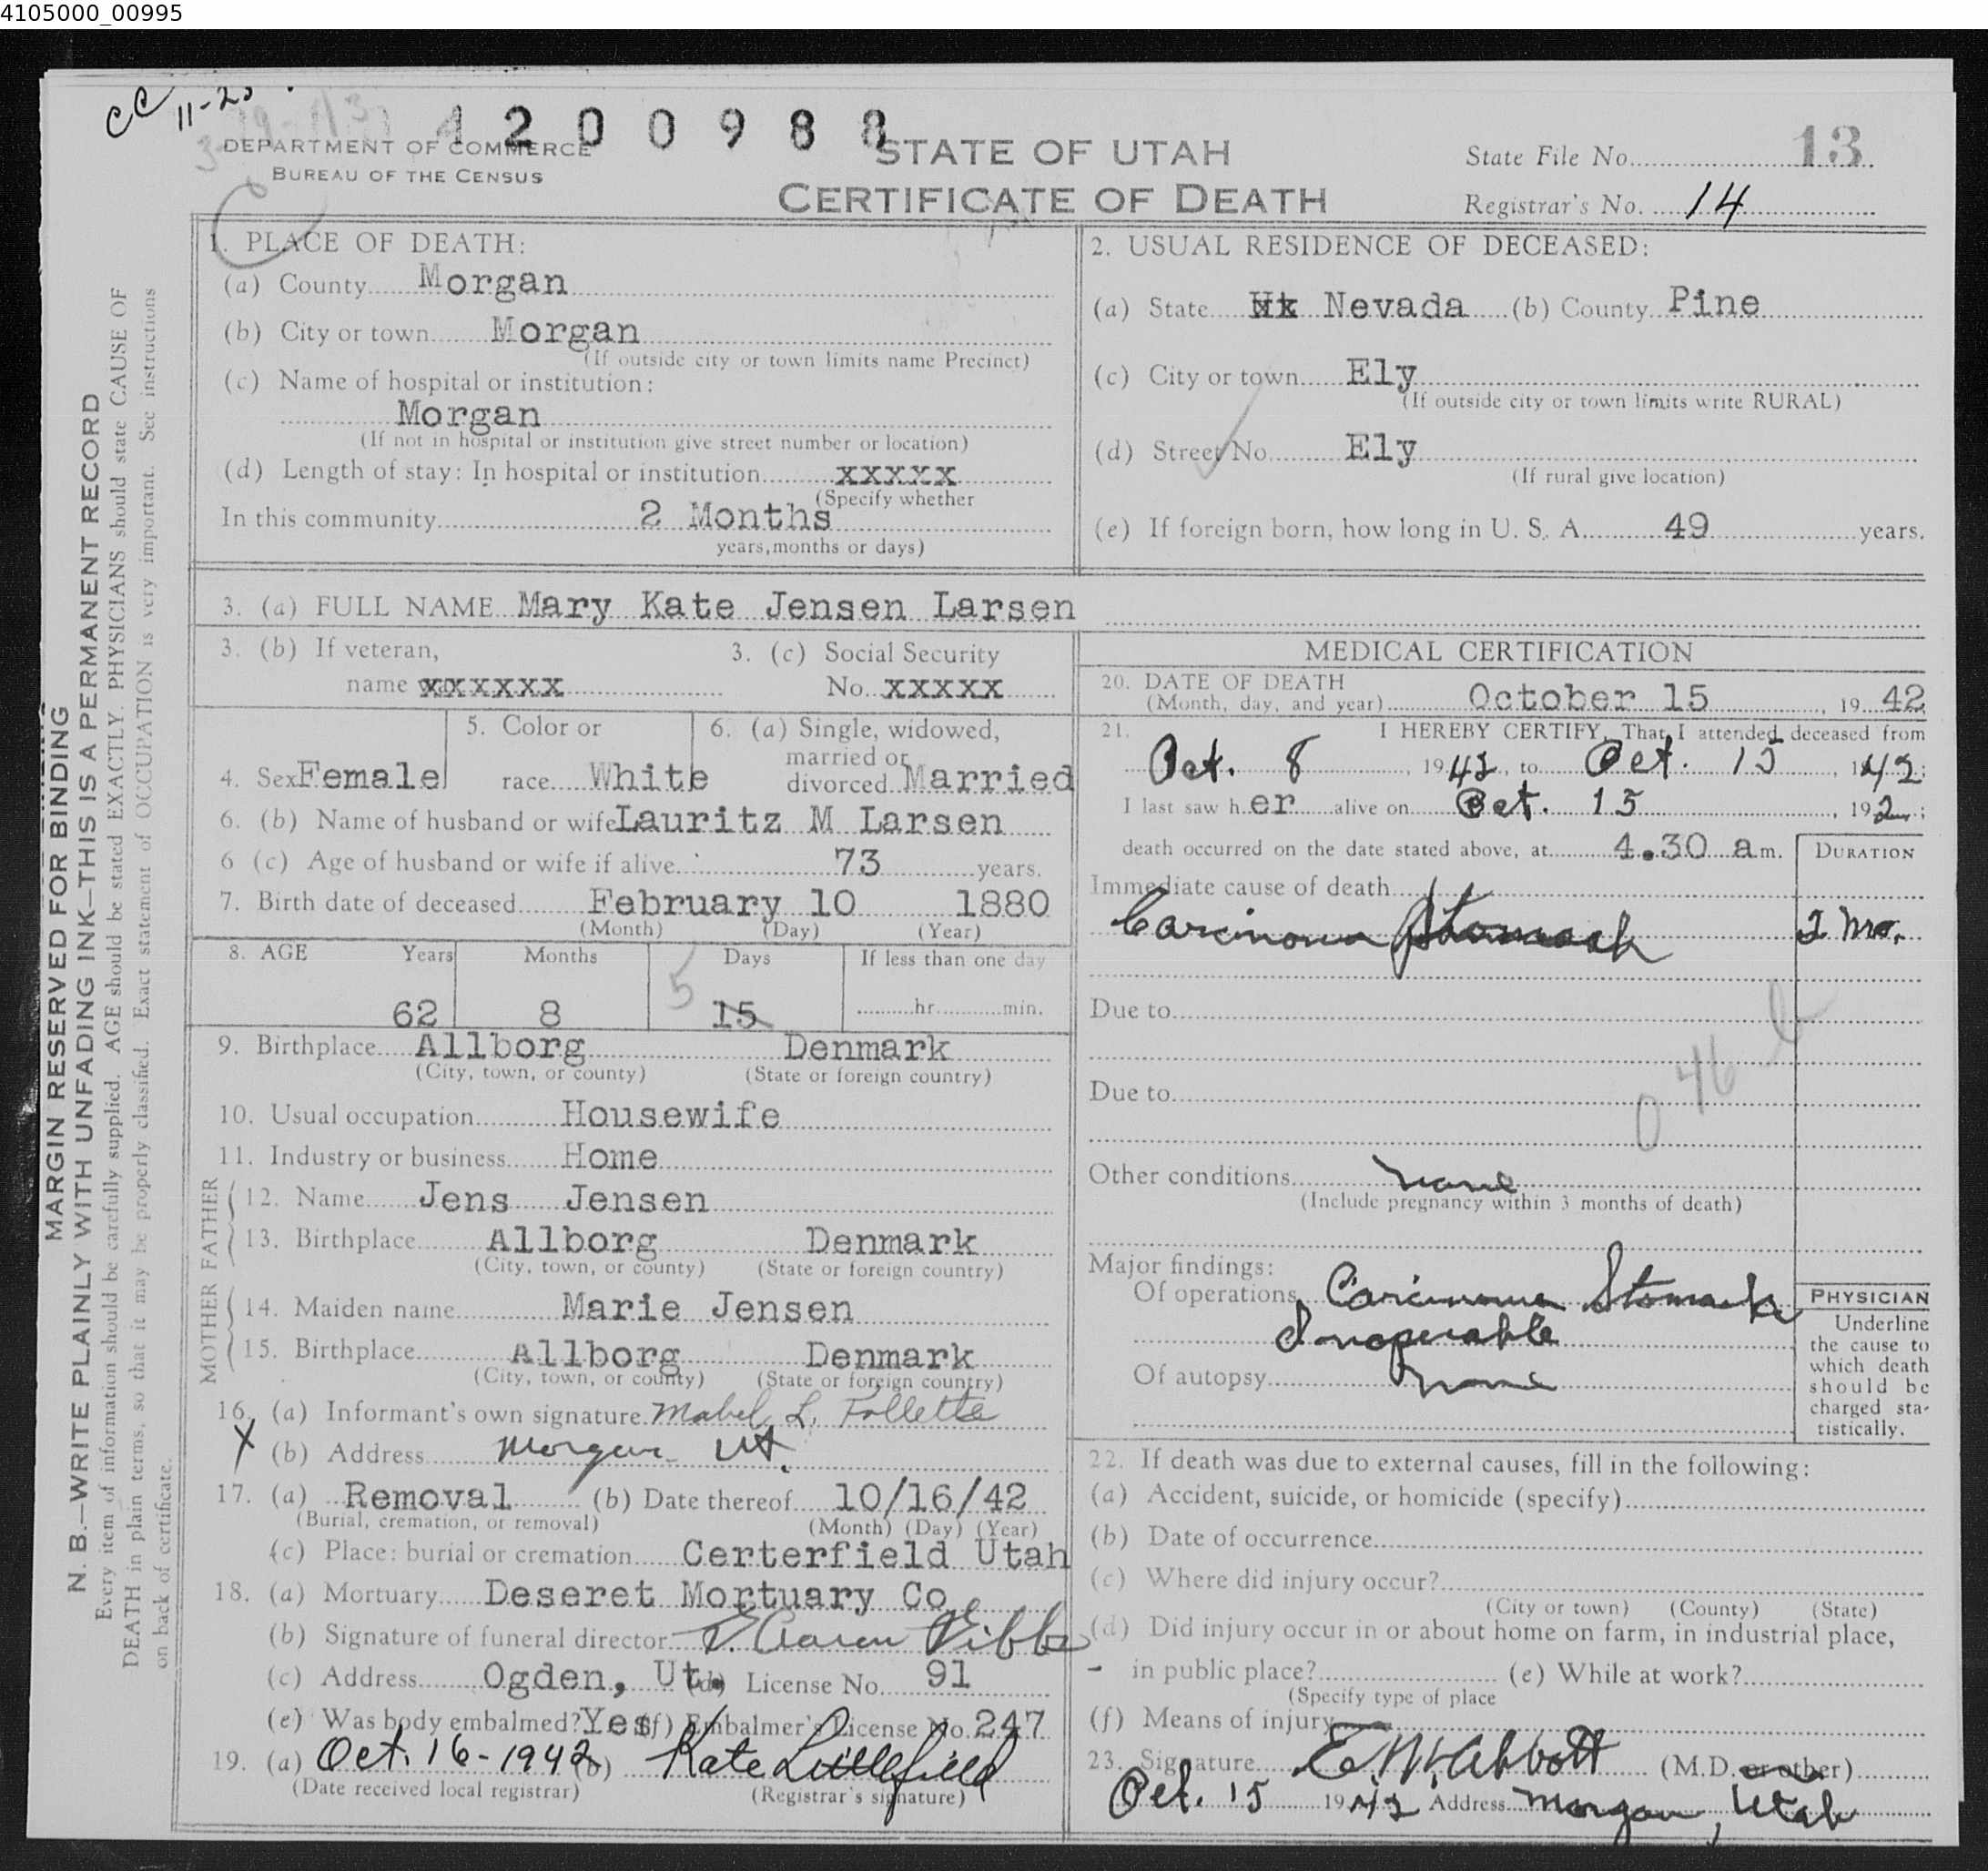 4105000_00995
CC 11-25
4200988
DEPARTMENT OF COMMERCE
BUREAU OF THE CENSUS
STATE OF UTAH
CERTIFICATE OF DEATH
State File No. 13
Registrar's No. 14
MARGIN RESERVED FOR BINDING
N. B.—WRITE PLAINLY WITH UNFADING INK—THIS IS A PERMANENT RECORD
Every item of information should be carefully supplied. AGE should be stated EXACTLY. PHYSICIANS should state CAUSE OF
DEATH in plain terms, so that it may be properly classified. Exact statement of OCCUPATION is very important. See instructions
on back of certificate.
1. PLACE OF DEATH:
(a) County Morgan
(b) City or town Morgan
(If outside city or town limits name Precinct)
(c) Name of hospital or institution:
Morgan
(If not in hospital or institution give street number or location)
(d) Length of stay: In hospital or institution xxxxx
(Specify whether
In this community 2 Months
years, months or days)
2. USUAL RESIDENCE OF DECEASED:
(a) State Nevada (b) County Pine
(c) City or town Ely
(If outside city or town limits write RURAL)
(d) Street No. Ely
(If rural give location)
(e) If foreign born, how long in U. S. A. 49 years.
3. (a) FULL NAME Mary Kate Jensen Larsen
3. (b) If veteran,
name xxxxxx
3. (c) Social Security
No. xxxxx
4. Sex Female
5. Color or
race White
6. (a) Single, widowed,
married or
divorced Married
6. (b) Name of husband or wife Lauritz M Larsen
6 (c) Age of husband or wife if alive 73 years.
7. Birth date of deceased February 10 1880
(Month) (Day) (Year)
8. AGE Years Months Days If less than one day
62 8 5 15 hr. min.
9. Birthplace Allborg Denmark
(City, town, or county) (State or foreign country)
10. Usual occupation Housewife
11. Industry or business Home
FATHER
12. Name Jens Jensen
13. Birthplace Allborg Denmark
(City, town, or county) (State or foreign country)
MOTHER
14. Maiden name Marie Jensen
15. Birthplace Allborg Denmark
(City, town, or county) (State or foreign country)
16. (a) Informant's own signature Mabel L. Follette
X (b) Address Morgan Ut.
17. (a) Removal (b) Date thereof 10/16/42
(Burial, cremation, or removal) (Month) (Day) (Year)
(c) Place: burial or cremation Certerfield Utah
18. (a) Mortuary Deseret Mortuary Co
(b) Signature of funeral director
(c) Address Ogden, Ut. (d) License No. 91
(e) Was body embalmed? Yes (f) Embalmer's License No. 247
19. (a) Oct. 16-1942 (b) Kate Littlefield
(Date received local registrar) (Registrar's signature)
MEDICAL CERTIFICATION
20. DATE OF DEATH
(Month, day, and year) October 15, 19 42
21. I HEREBY CERTIFY, That I attended deceased from
Oct. 8, 1942, to Oct. 15, 142;
I last saw her alive on Oct. 15, 192;
death occurred on the date stated above, at 4.30 a m.
DURATION
Immediate cause of death
Carcinoma Stomach 2 mo.
Due to
Due to
046 b
Other conditions none
(Include pregnancy within 3 months of death)
Major findings:
Of operations Carcinoma Stomach
Inoperable
Of autopsy none
PHYSICIAN
Underline
the cause to
which death
should be
charged sta-
tistically.
22. If death was due to external causes, fill in the following:
(a) Accident, suicide, or homicide (specify)
(b) Date of occurrence
(c) Where did injury occur?
(City or town) (County) (State)
(d) Did injury occur in or about home on farm, in industrial place,
in public place? (e) While at work?
(Specify type of place
(f) Means of injury
23. Signature E. W. Abbott (M.D. or other)
Oct. 15 1942 Address Morgan, Utah